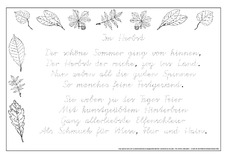 Im Herbst
Der schöne Sommer ging von hinnen,
Der Herbst der reiche, zog ins Land.
Nun weben all die guten Spinnen
So manches feine Festgewand.
Sie weben zu des Tages Feier
Mit kunstgeübtem Hinterbein
Ganz allerliebste Elfenschleier
Als Schmuck für Wiese, Flur und Hain.